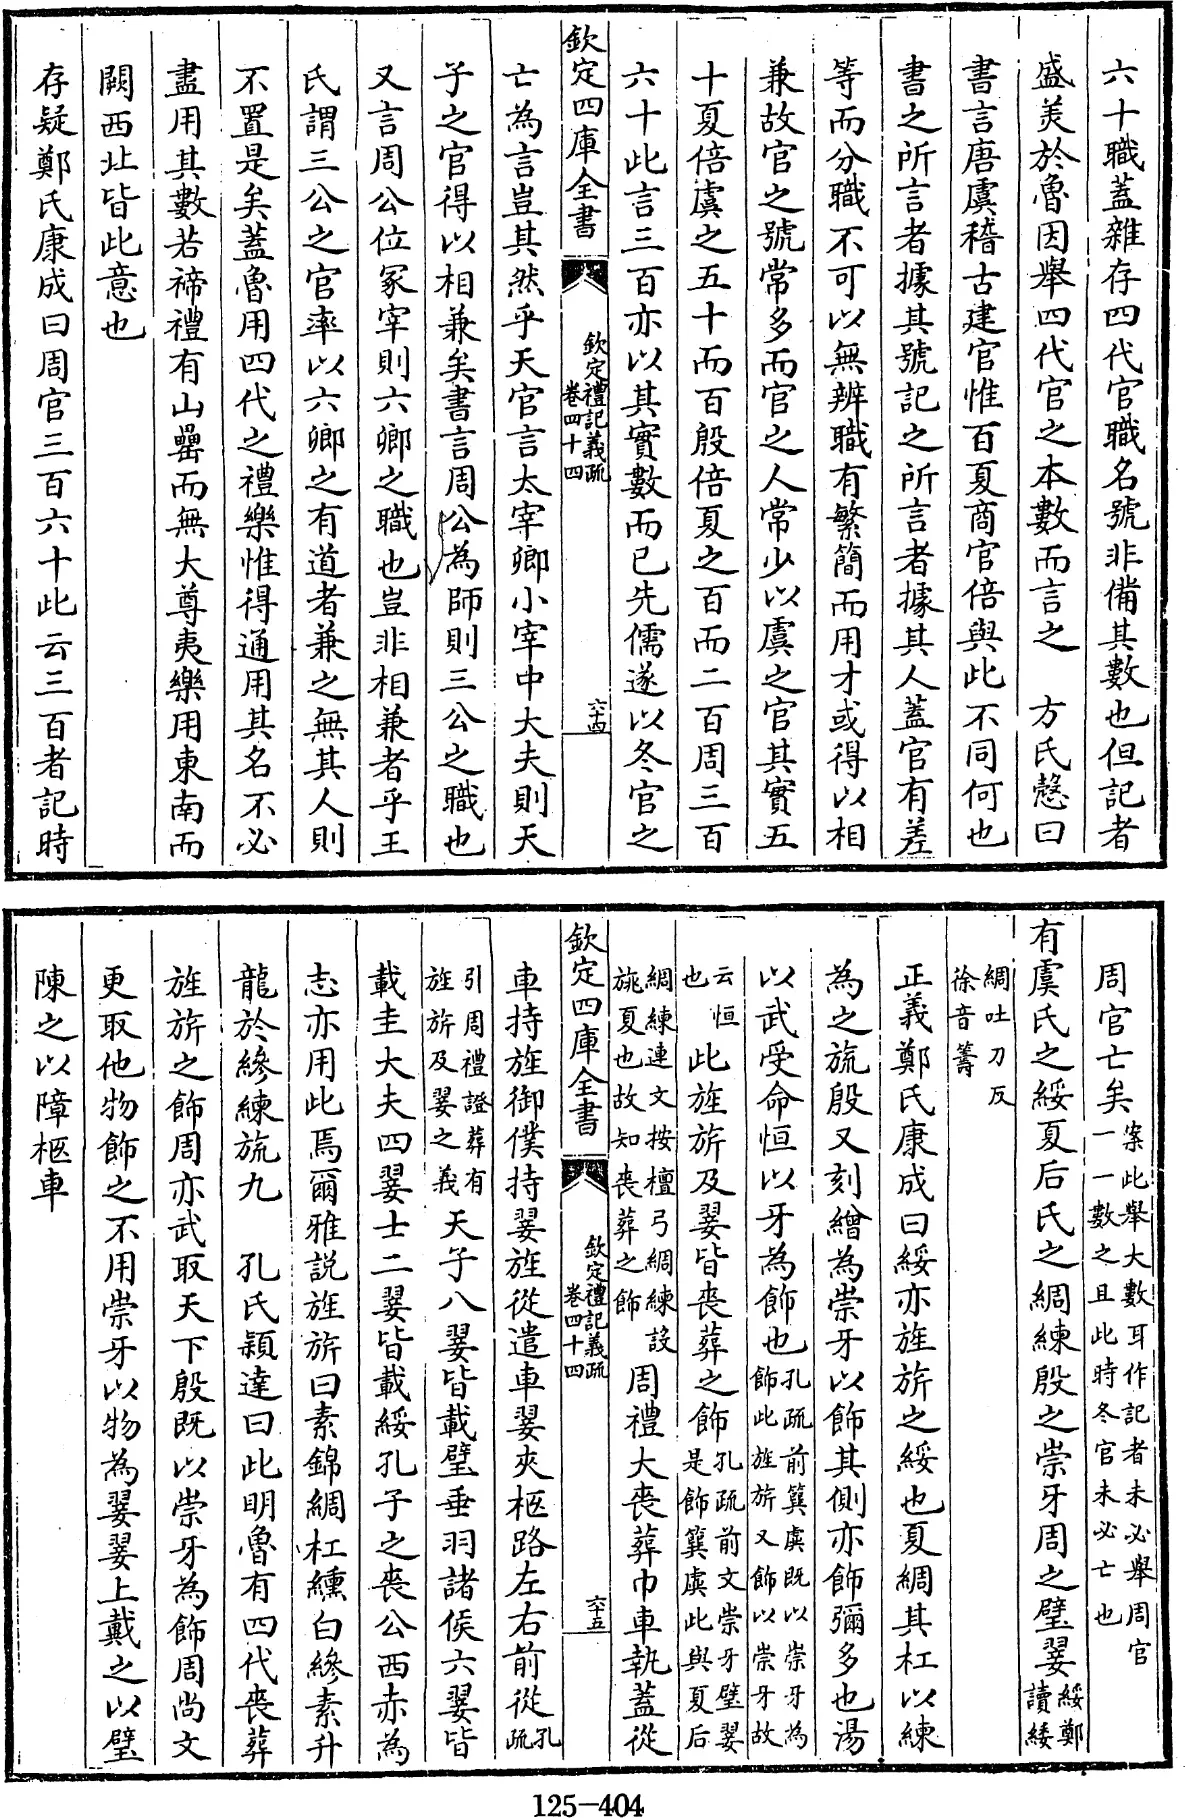 六十職蓋雜存四代官職名號非備其數也但記者
盛美於魯因舉四代官之本數而言之　方氏慤曰
書言唐虞稽古建官惟百夏商官倍與此不同何也
書之所言者據其號記之所言者據其人蓋官有差
等而分職不可以無辨職有繁簡而用才或得以相
兼故官之號常多而官之人常少以虞之官其實五
十夏倍虞之五十而百殷倍夏之百而二百周三百
六十此言三百亦以其實數而已先儒遂以冬官之
欽定四庫全書
欽定禮記義疏
卷四十四
六十四
亡為言豈其然乎天官言太宰卿小宰中大夫則天
子之官得以相兼矣書言周公為師則三公之職也
又言周公位冢宰則六卿之職也豈非相兼者乎王
氏謂三公之官率以六卿之有道者兼之無其人則
不置是矣蓋魯用四代之禮樂惟得通用其名不必
盡用其數若禘禮有山罍而無大尊夷樂用東南而
闕西北皆此意也
存疑鄭氏康成曰周官三百六十此云三百者記時
周官亡矣案此舉大數耳作記者未必舉周官
一一數之且此時冬官未必亡也
有虞氏之綏夏后氏之綢練殷之崇牙周之璧翣綏鄭
讀緌
綢吐刀反
徐音籌
正義鄭氏康成曰綏亦旌旂之緌也夏綢其杠以練
為之旒殷又刻繒為崇牙以飾其側亦飾彌多也湯
以武受命恒以牙為飾也孔疏前簨虡既以崇牙為
飾此旌旂又飾以崇牙故
云恒
也此旌旂及翣皆喪葬之飾孔疏前文崇牙璧翣
是飾簨虡此與夏后
綢練連文按檀弓綢練設
旐夏也故知喪葬之飾周禮大喪葬巾車執蓋從
欽定四庫全書
欽定禮記義疏
卷四十四
六十五
車持旌御僕持翣旌從遣車翣夾柩路左右前從孔
疏
引周禮證葬有
旌旂及翣之義天子八翣皆載璧垂羽諸侯六翣皆
載圭大夫四翣士二翣皆載綏孔子之喪公西赤為
志亦用此焉爾雅説旌旂曰素錦綢杠纁白縿素升
龍於縿練旒九　孔氏穎達曰此明魯有四代喪葬
旌旂之飾周亦武取天下殷既以崇牙為飾周尚文
更取他物飾之不用崇牙以物為翣翣上戴之以璧
陳之以障柩車
125-404